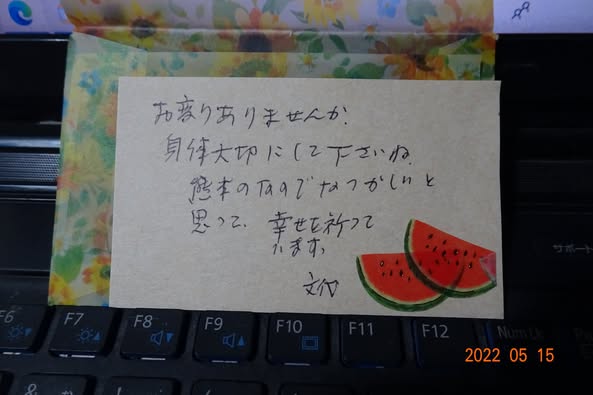 お変りありませんか。
身体大切にして下さいね。
熊本のなのでなつかしいと
思って、幸せを祈って
います。
F6
F7
F8
F9
F10
F11
F12
NumLk
サポート
&
2022 05 15